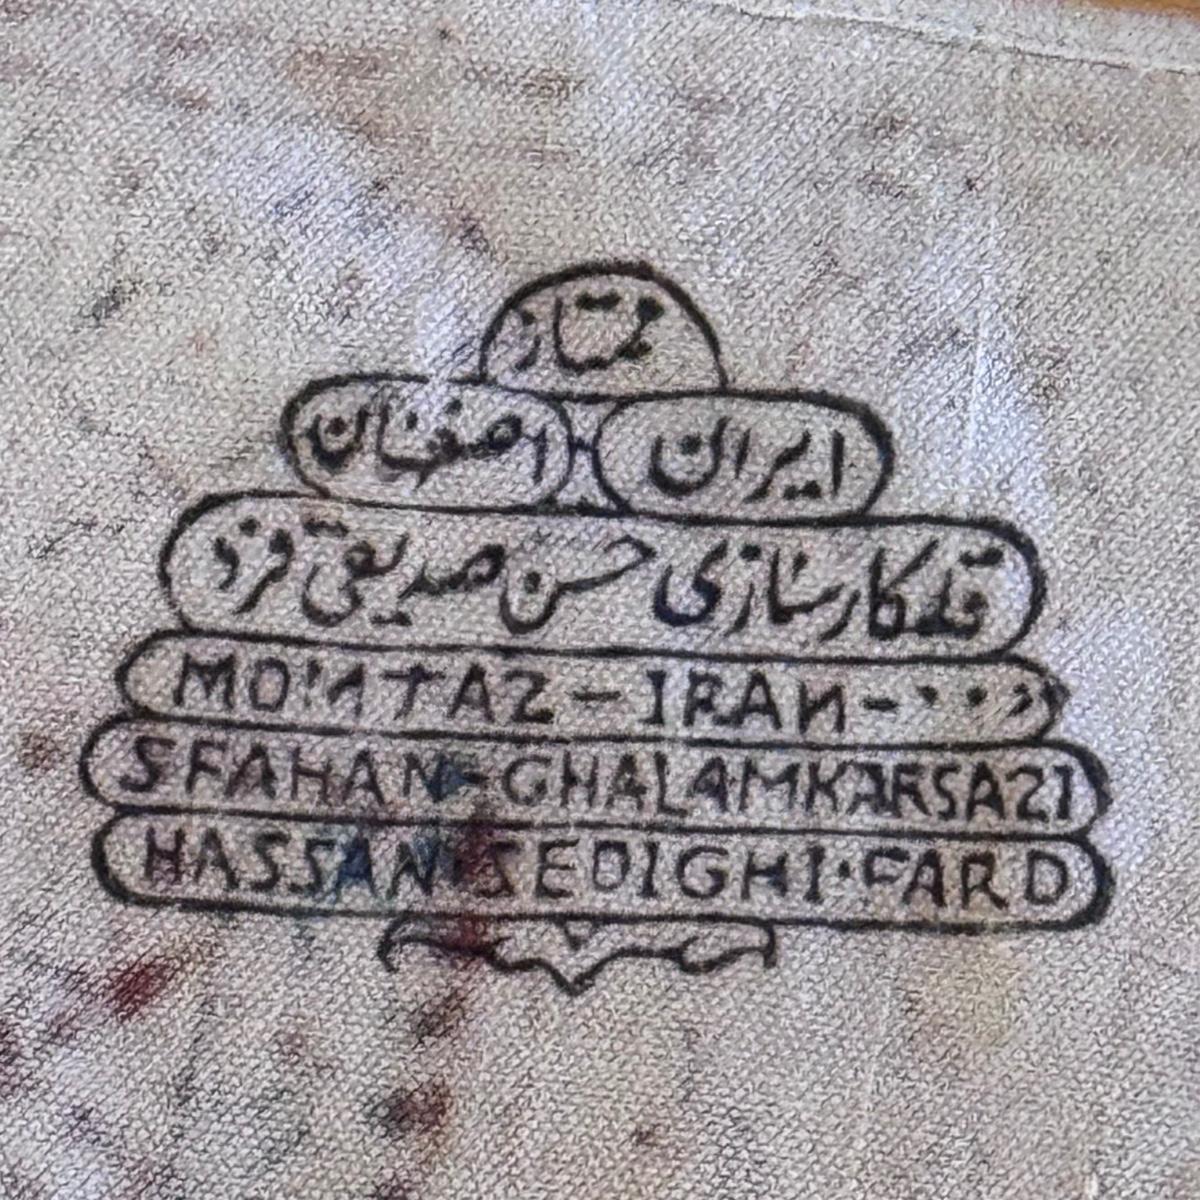 ممتاز
ایران اصفهان
قلمکارسازی حسن صدیقی فرد
MOMTAZ - IRAN -
SFAHAN - GHALAMKARSAZI
HASSAN SEDIGHI. FARD